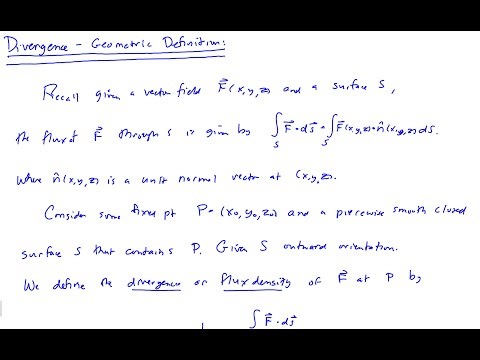 Divergence - Geometric Definition:
Recall given a vector field F⃗(x,y,z) and a surface S,
the flux of F⃗ through S is given by ∫_S F⃗ • dS⃗ = ∫_S F⃗(x,y,z) • n̂(x,y,z) dS.
Where n̂(x,y,z) is a unit normal vector at (x,y,z).
Consider some fixed pt P=(x₀,y₀,z₀) and a piecewise smooth closed
surface S that contains P. Given S outward orientation.
We define the divergence or flux density of F⃗ at P by
∫ F⃗ • dS⃗